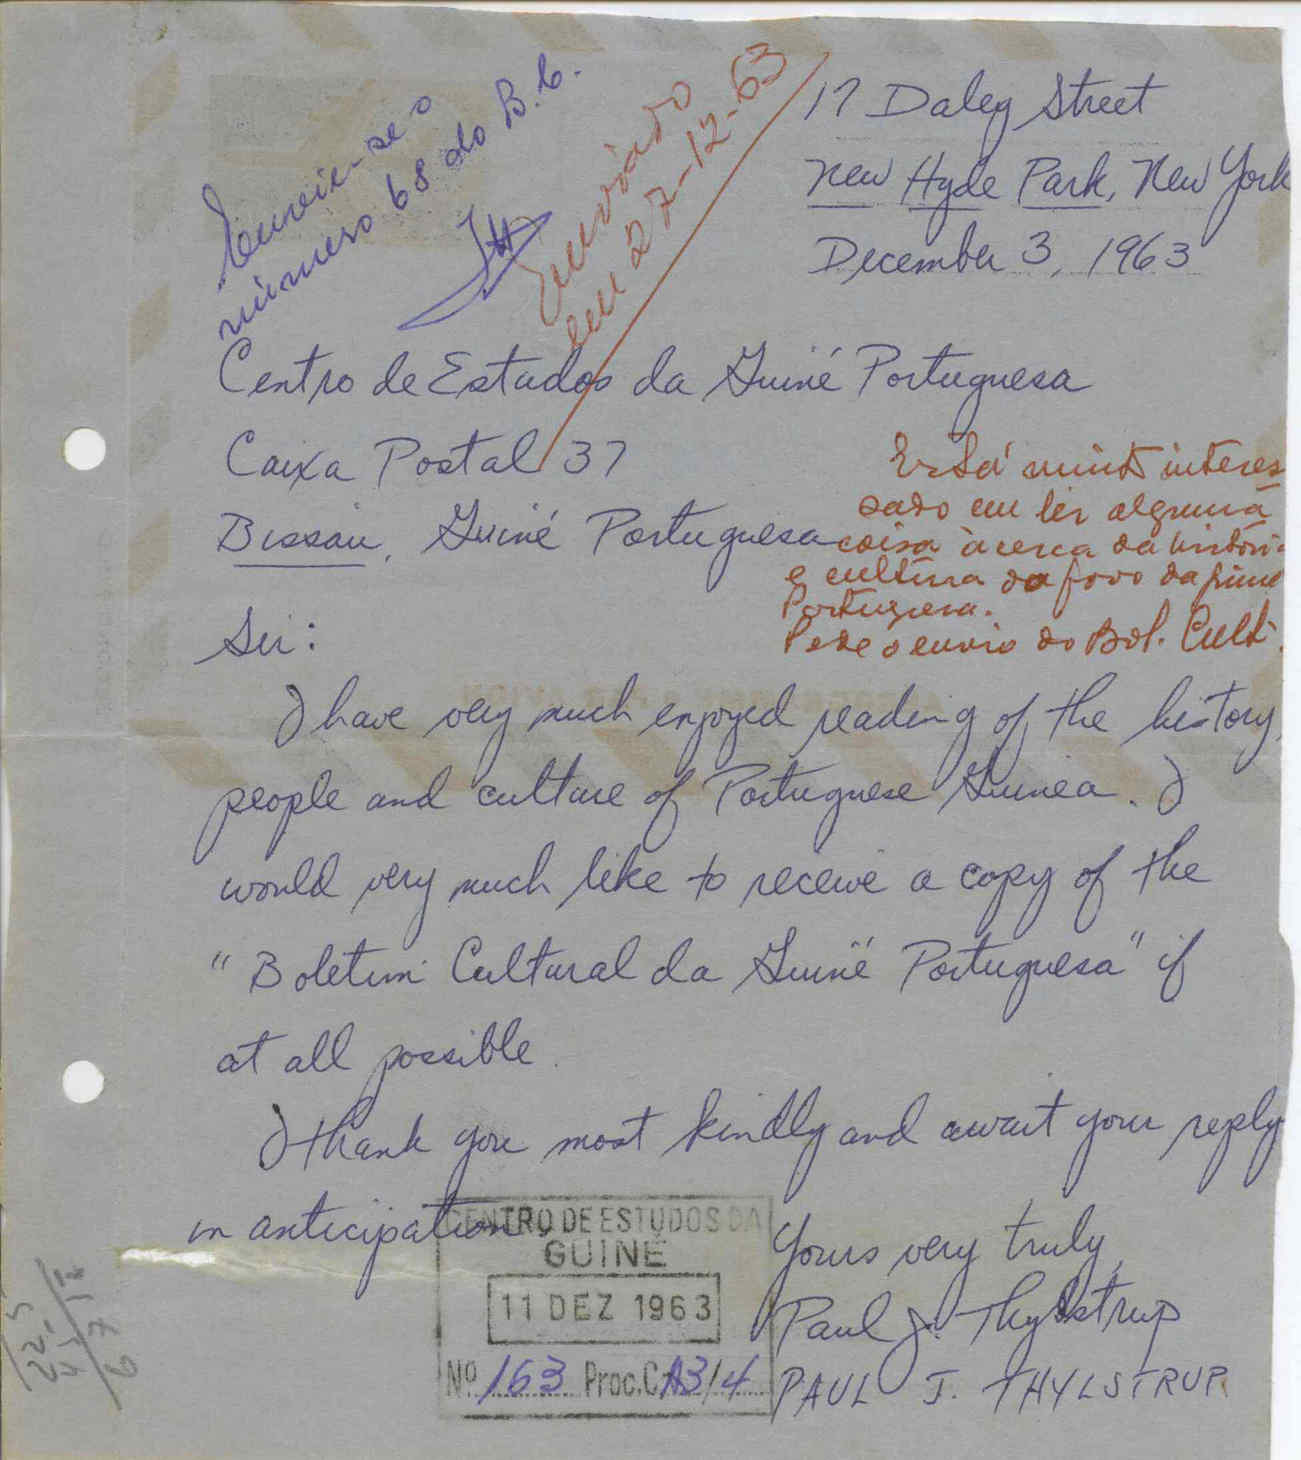 17 Daley Street
New Hyde Park, New York
December 3, 1963
número 68 do B.C.
Enviado
em 27-12-63
Centro de Estudos da Guiné Portuguesa
Caixa Postal 37
Bissau, Guiné Portuguesa
Está muito interes
sado em ler alguma
coisa àcerca da históri
e cultura do povo da Guiné
Portuguesa.
Pede o envio do Bol. Cult.
Sir:
I have very much enjoyed reading of the history,
people and culture of Portuguese Guinea. I
would very much like to receive a copy of the
"Boletim Cultural da Guiné Portuguesa" if
at all possible.
I thank you most kindly and await your reply
in anticipation.
Yours very truly,
Paul J. Thylstrup
PAUL J. THYLSTRUP
CENTRO DE ESTUDOS DA
GUINÉ
11 DEZ 1963
Nº 163 Proc. C A3/4